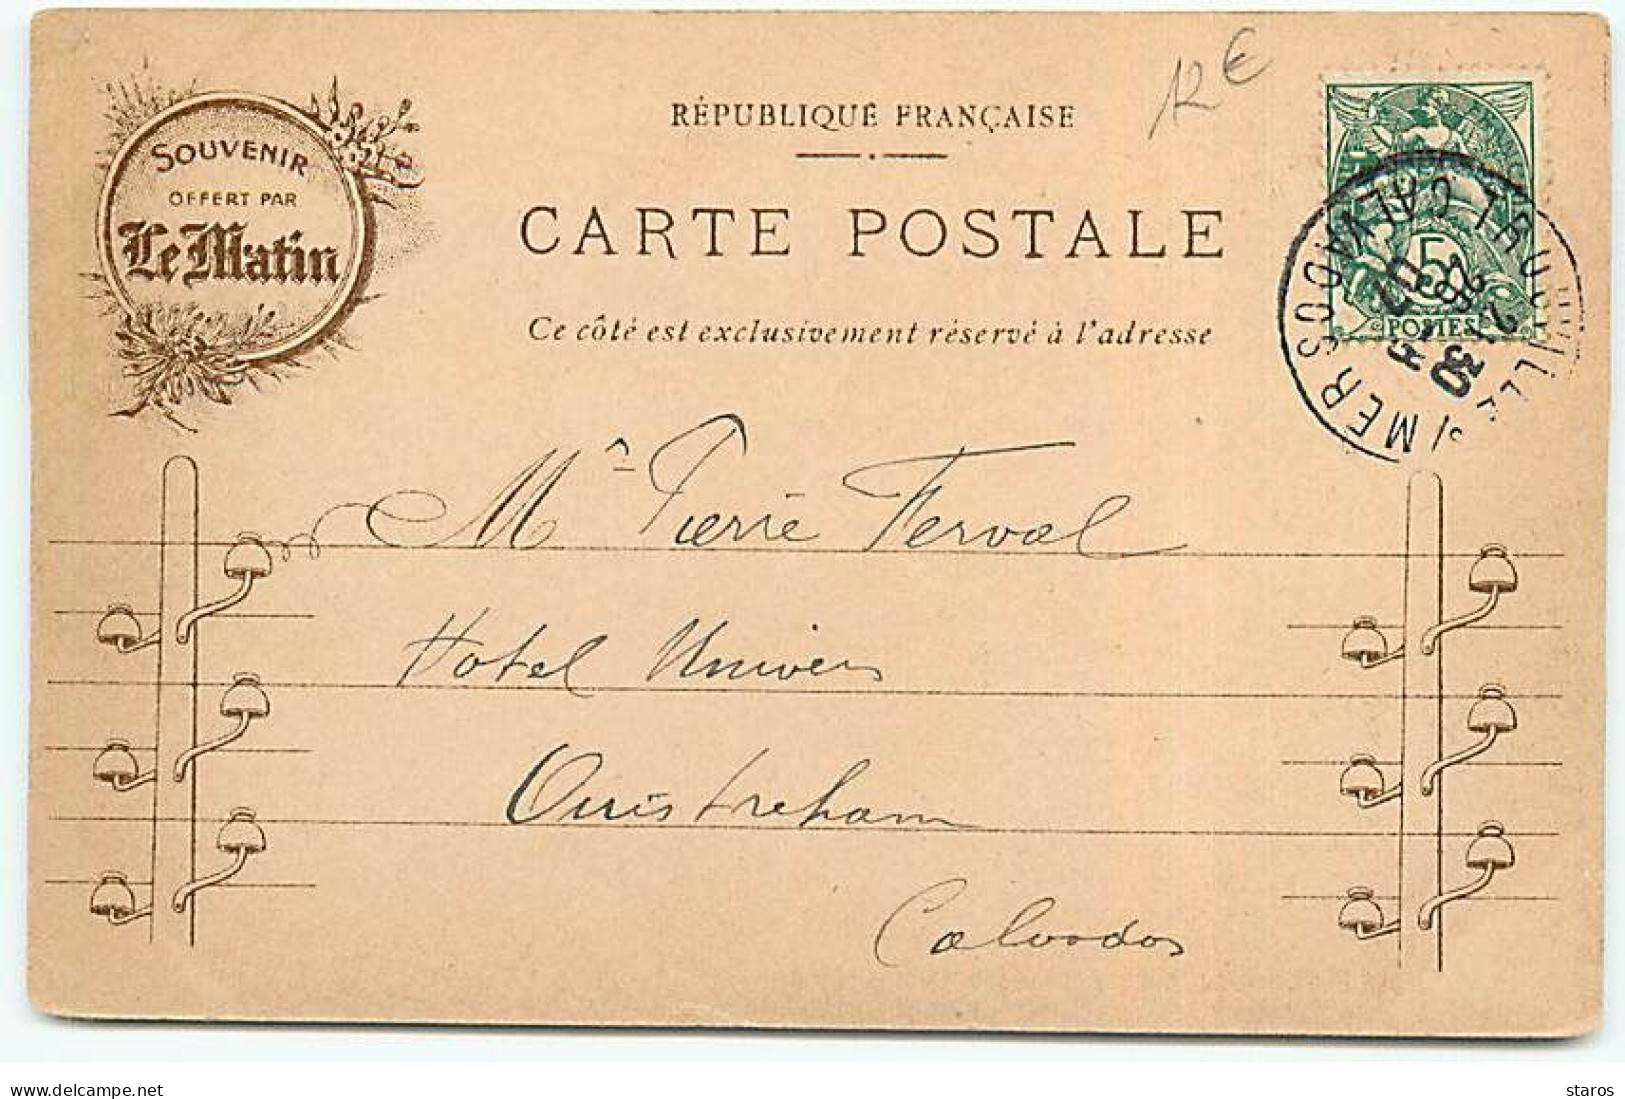 12 €
SOUVENIR
OFFERT PAR
Le Matin
RÉPUBLIQUE FRANÇAISE
CARTE POSTALE
Ce côté est exclusivement réservé à l'adresse
5
POSTES
CALVADOS
MER
Mr Pierre Ferval
Hotel Univers
Ouistreham
Calvados
www.delcampe.net
staros